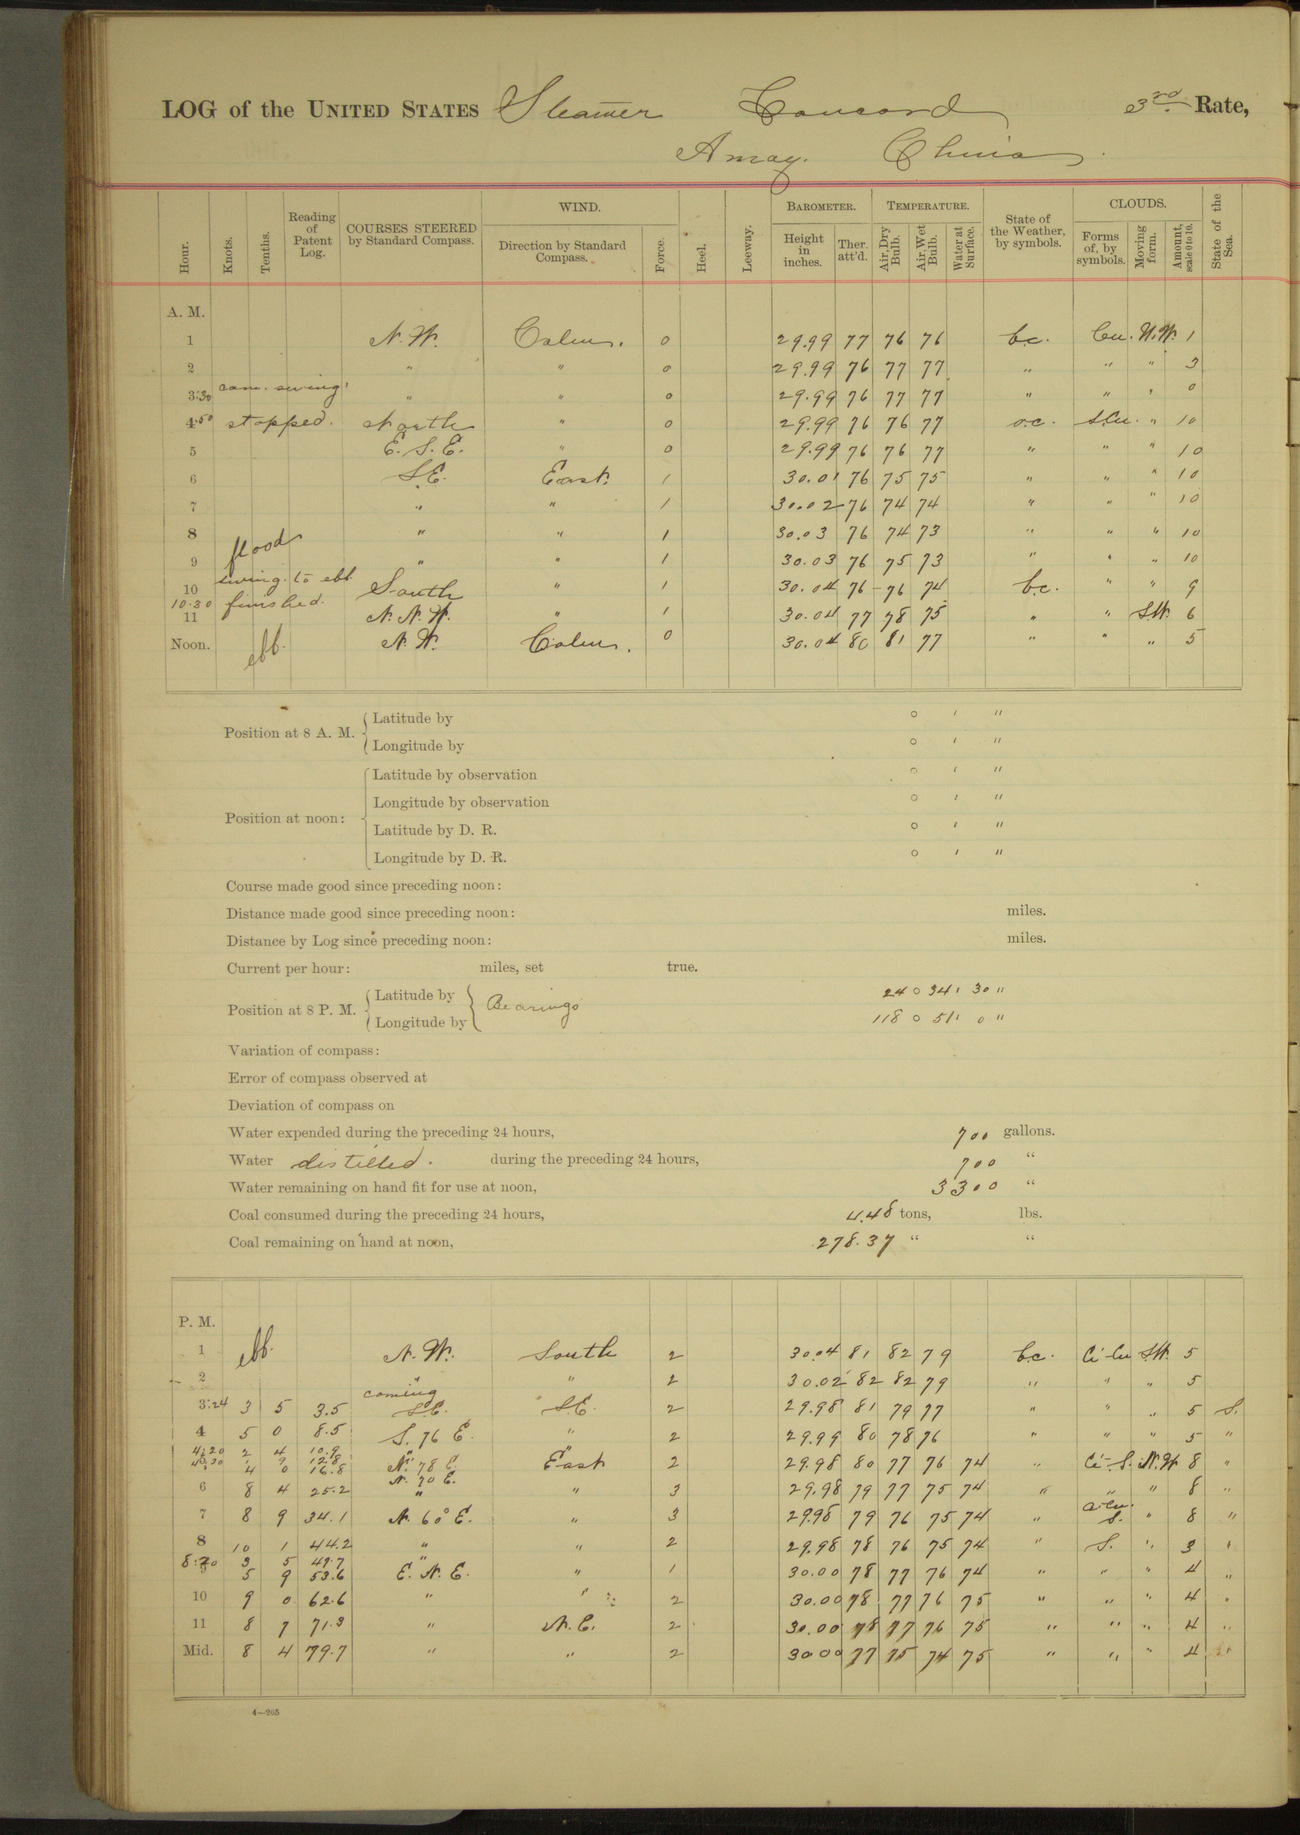 LOG of the UNITED STATES Steamer Concord 3rd Rate,
Amoy. China.
Hour. Knots. Tenths. Reading of Patent Log. COURSES STEERED by Standard Compass. WIND. Direction by Standard Compass. Force. Heel. Leeway. BAROMETER. Height in inches. Ther. att'd. TEMPERATURE. Air, Dry Bulb. Air, Wet Bulb. Water at Surface. State of the Weather, by symbols. CLOUDS. Forms of, by symbols. Moving form. Amount, scale 0 to 10. State of the Sea.
A. M.
1 N. W. Calm. 0 29.99 77 76 76 b.c. Cu. N.W. 1
2 " " 0 29.99 76 77 77 " " " 3
3:30 com. swing' " " 0 29.99 76 77 77 " " " 0
4:50 stopped. North " 0 29.99 76 76 77 o.c. S.Cu. " 10
5 E. S. E. " 0 29.99 76 76 77 " " " 10
6 S.E. East. 1 30.01 76 75 75 " " " 10
7 " " 1 30.02 76 74 74 " " " 10
8 " " 1 30.03 76 74 73 " " " 10
flood
9 " " 1 30.03 76 75 73 " " " 10
swing. to ebb
10 South " 1 30.04 76 76 74 b.c. " " 9
10.30 finished.
11 N. N. W. " 1 30.04 77 78 75 " " S.W. 6
Noon. ebb. N. W. Calm. 0 30.04 80 81 77 " " " 5
Position at 8 A. M. Latitude by ° ' "
Longitude by ° ' "
Position at noon: Latitude by observation ° ' "
Longitude by observation ° ' "
Latitude by D. R. ° ' "
Longitude by D. R. ° ' "
Course made good since preceding noon:
Distance made good since preceding noon: miles.
Distance by Log since preceding noon: miles.
Current per hour: miles, set true.
Position at 8 P. M. Latitude by Bearings 24 ° 34 ' 30 "
Longitude by 118 ° 51 ' 0 "
Variation of compass:
Error of compass observed at
Deviation of compass on
Water expended during the preceding 24 hours, 700 gallons.
Water distilled. during the preceding 24 hours, 700 "
Water remaining on hand fit for use at noon, 3300 "
Coal consumed during the preceding 24 hours, 4.48 tons, lbs.
Coal remaining on hand at noon, 278.37 " "
P. M.
1 ebb. N. W. South 2 30.04 81 82 79 b.c. Ci-Cu S.W. 5
2 " " 2 30.02 82 82 79 " " " 5
coming
3:24 3 5 3.5 S.E. S.E. 2 29.98 81 79 77 " " " 5 S.
4 5 0 8.5 S. 76 E. " 2 29.99 80 78 76 " " " 5 "
4:20 2 4 10.9 "
4 0 16.8 N. 78 E. East 2 29.98 80 77 76 74 " Ci-S. N.W 8 "
N. 70 E.
6 8 4 25.2 " " 3 29.98 79 77 75 74 " " " 8 "
7 8 9 34.1 N. 60° E. " 3 29.98 79 76 75 74 " S. " 8 "
8 10 1 44.2 " " 2 29.98 78 76 75 74 " S. " 3 "
3 5 47.7 "
9 5 9 53.6 E. N. E. " 1 30.00 78 77 76 74 " " " 4 "
10 9 0 62.6 " " 2 30.00 78 77 76 75 " " " 4 "
11 8 7 71.3 " N.E. 2 30.00 78 77 76 75 " " " 4 "
Mid. 8 4 79.7 " " 2 30.00 77 75 74 75 " " " 4 "
4—205